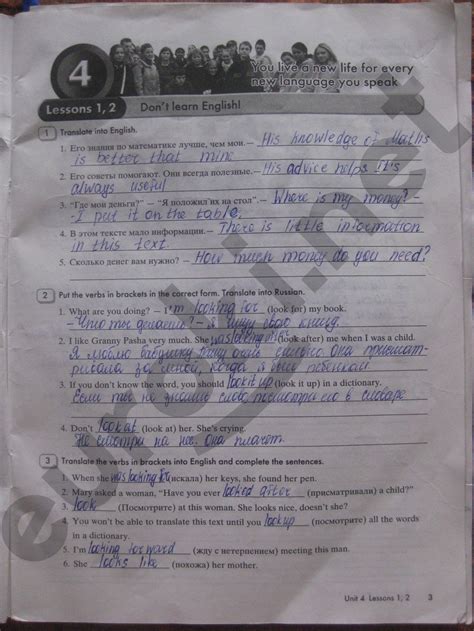 4
You live a new life for every
new language you speak
Lessons 1, 2 Don't learn English!
1 Translate into English.
1. Его знания по математике лучше, чем мои. – His knowledge of Maths
is better that mine
2. Его советы помогают. Они всегда полезные. – His advice helps. It's
always useful
3. "Где мои деньги?" – "Я положил их на стол". – Where is my money? –
- I put it on the table.
4. В этом тексте мало информации. – There is little information
in this text.
5. Сколько денег вам нужно? – How much money do you need?
2 Put the verbs in brackets in the correct form. Translate into Russian.
1. What are you doing? – I'm looking for (look for) my book.
- Что ты делаешь? - Я ищу свою книгу.
2. I like Granny Pasha very much. She was looking after (look after) me when I was a child.
Я люблю бабушку очень сильно. Она присмат-
ривала за мной, когда я был ребенком
3. If you don't know the word, you should look it up (look it up) in a dictionary.
Если ты не знаешь слово посмотри его в словаре
4. Don't look at (look at) her. She's crying.
Не смотри на нее. она плачет.
3 Translate the verbs in brackets into English and complete the sentences.
1. When she was looking for (искала) her keys, she found her pen.
2. Mary asked a woman, "Have you ever looked after (присматривали) a child?"
3. look (Посмотрите) at this woman. She looks nice, doesn't she?
4. You won't be able to translate this text until you look up (посмотрите) all the words
in a dictionary.
5. I'm looking forward (жду с нетерпением) meeting this man.
6. She looks like (похожа) her mother.
Unit 4 Lessons 1, 2 3
euroki.net